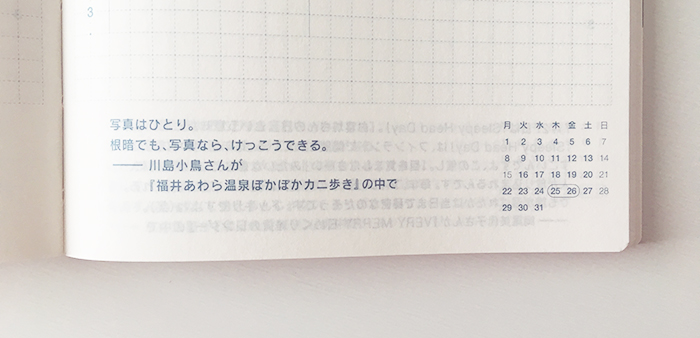 3
写真はひとり。
根暗でも、写真なら、けっこうできる。
—— 川島小鳥さんが
『福井あわら温泉ぽかぽかカニ歩き』の中で
月 火 水 木 金 土 日
1 2 3 4 5 6 7
8 9 10 11 12 13 14
15 16 17 18 19 20 21
22 23 24 25 26 27 28
29 30 31